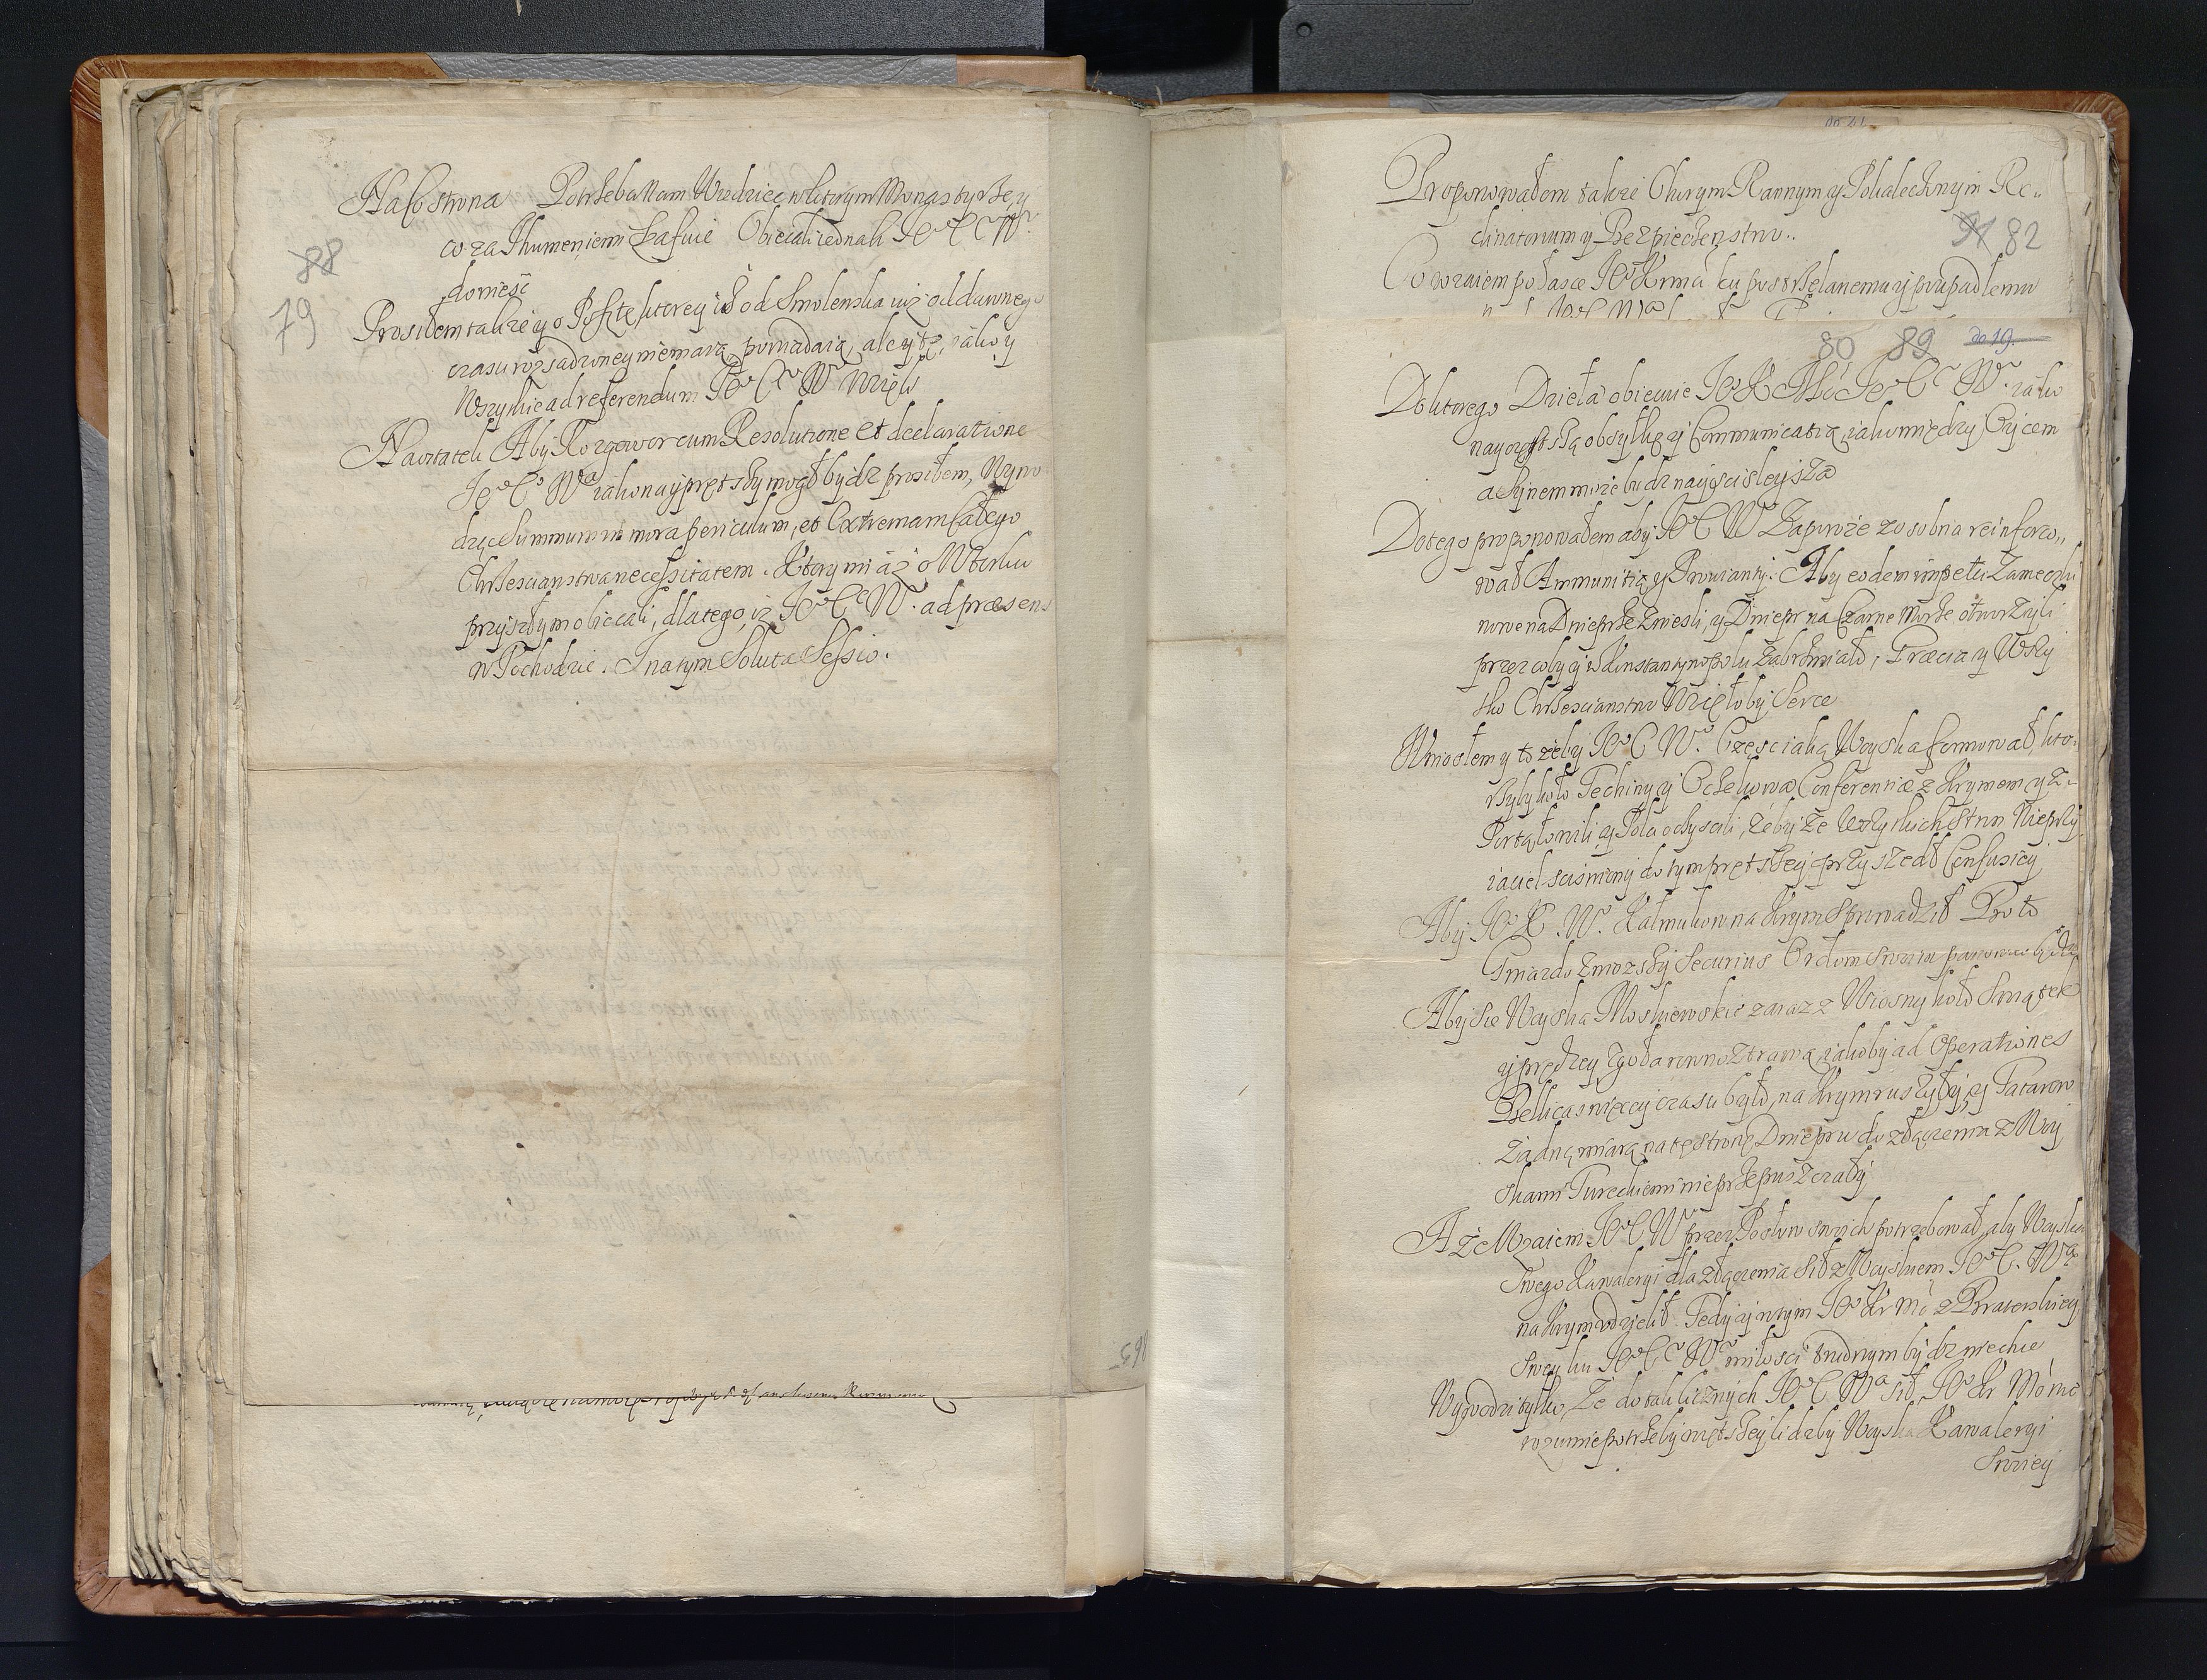 Na co strona Potrzeba nam Wiedziec w ktorym Mongstyrze, y
co za Ihumeniem Łaskie Obiecali iednak Jeo C W.
88
doniesc
79
Prosiłem takze y o Posztę ktorey iż od Smolenska iuż od dawnego
czasu rozsadzoney niemasz powiadaią, ale y tę, iako y
Wszytkie ad referendum Jeo Co Wo Wzięli
Nawrateli Aby Rozgowor cum Resolutione et declaratione
Jeo Co Wa iako nayprętszy mogł bydz prosiłem, Wywo
dząc Summum in mora periculum, et Extremam całego
Chrzescianstwa necessitatem. Ktory mi áż o Wtorku
przyszłym obiecali, dlatego, iż Jeo Ce W. ad præsens
w Pochodzie. I na tym Soluta Sessio.
Proponowałem takze Chorym Rannym y Pokaleczonym Re„
clinatorium y Bezpieczenstwo..
91 82
Co wzaiem pokaze Jeo Krma ku postrzelanemu y przypadłemu
80 89 do 19.
Do ktorego Dzieła obiecuie Jeo K Mść Jeo Co Wo iako
nayczęstszą obsyłkę y Communicatią, iako między Oycem
a Synem może budz nayscisleysza
Do tego proponowałem aby Jeo C Wo Zaporoże zosobna reinforco„
wał Ammunitią y Prowianty. Aby eodem impetu Zameczki
nowe na Dnieprze Zniesli, y Dniepr na Czarne Morze otworzyli
przez coby y w Konstantynopolu Zabrzmiało, Græcia y Wszy
tko Chrzescianstwo Wzięłoby Serce
Wniosłem y to żeby Jeo C Wo. Częsc iaką Woyska formował, kto„
rzyby koło Techiny y Oczekowa Conferentiæ z Krymem y z„
Portą łowili, y Pola oczyscili, żeby Ze wszytkich Stron Nieprzy
iaciel scisniony do tym prętszey przyszedł Confusiey
Aby Jeo K. W. Kałmukow na Krym sprowadził Bo to
Gniazdo Zniozszy Securius Ordom swoim panowac będzie
Aby sie Woyska Moskiewskie zaraz z Wiosny koło Swiątek
y prędzey zgoła rowno z trawą, iakoby ad Operationes
Bellicas więcey czasu było, na Krym ruszyły, y Tatarow
żadną miarą na tę stronę Dniepru do złączenia z Woy
skami Tureckiemi nie przepuszczały
A że Wzaiem Jeo C Wo przez Posłow swoich potrzebował, aby Woyska
Swego Kawaleryi dla złączenia sił z Woyskiem Jeo C. Wa
na Krym udzielił. Tedy y w tym Jeo Kr Mć z Braterskiey
swey ku Jeo Co Wo miłosci trudnym bydz niechce
Wywodzi tylko, Że do tak licznych Jeo C Wa sił, Jeo Kr Mć nie
rozumie potrzeby więtszey liczby Woyska Kawaleryi
Swoiey